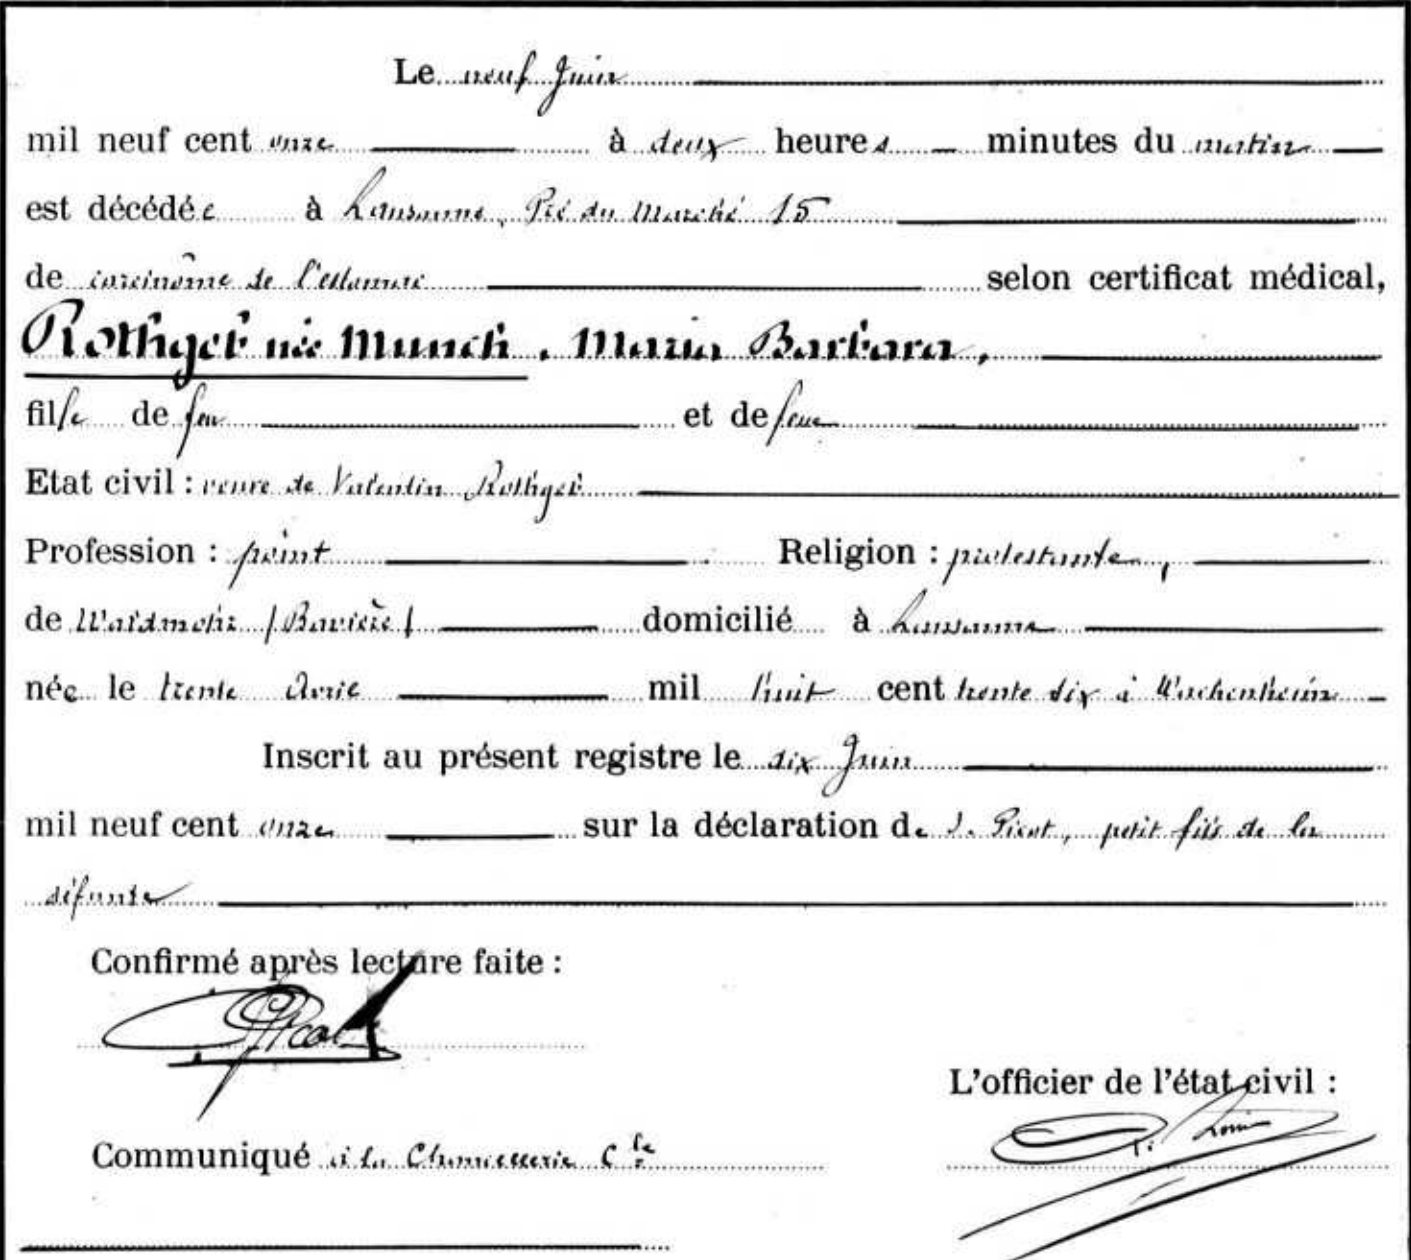 Le neuf Juin
mil neuf cent onze à deux heures - minutes du matin
est décédée à Lausanne, Pré du Marché 15
de carcinôme de l'estomac selon certificat médical,
Rothgeb née Munch, Maria Barbara,
fille de feu et de feue
Etat civil : veuve de Valentin Rothgeb
Profession : point Religion : protestante,
de Waldmohr (Bavière) domicilié à Lausanne
née le trente Avril mil huit cent trente six à Wachenheim
Inscrit au présent registre le dix Juin
mil neuf cent onze sur la déclaration de Picot, petit fils de la
défunte
Confirmé après lecture faite :
Picot
L'officier de l'état civil :
Communiqué à la Chancellerie Cle